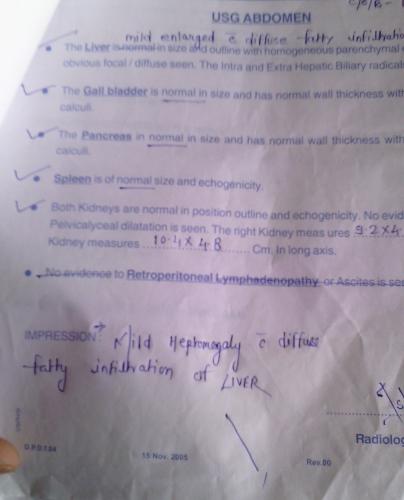 C/O/B-
USG ABDOMEN
mild enlarged c̄ diffuse fatty infiltratio
• The Liver is normal in size and outline with homogeneous parenchymal
obvious focal / diffuse seen. The Intra and Extra Hepatic Biliary radical
• The Gall bladder is normal in size and has normal wall thickness with
calculi.
• The Pancreas in normal in size and has normal wall thickness with
calculi.
• Spleen is of normal size and echogenicity.
• Both Kidneys are normal in position outline and echogenicity. No evid
Pelvicalyceal dilatation is seen. The right Kidney meas ures 9.2x4.
Kidney measures 10.4x4.8 Cm. In long axis.
• No evidence to Retroperitoneal Lymphadenopathy or Ascites is see
IMPRESSION: → Mild Hephomegaly c̄ diffuse
fatty infiltration of LIVER
Radiolog
O.P.D.f.84
15 Nov. 2005
Rev.00